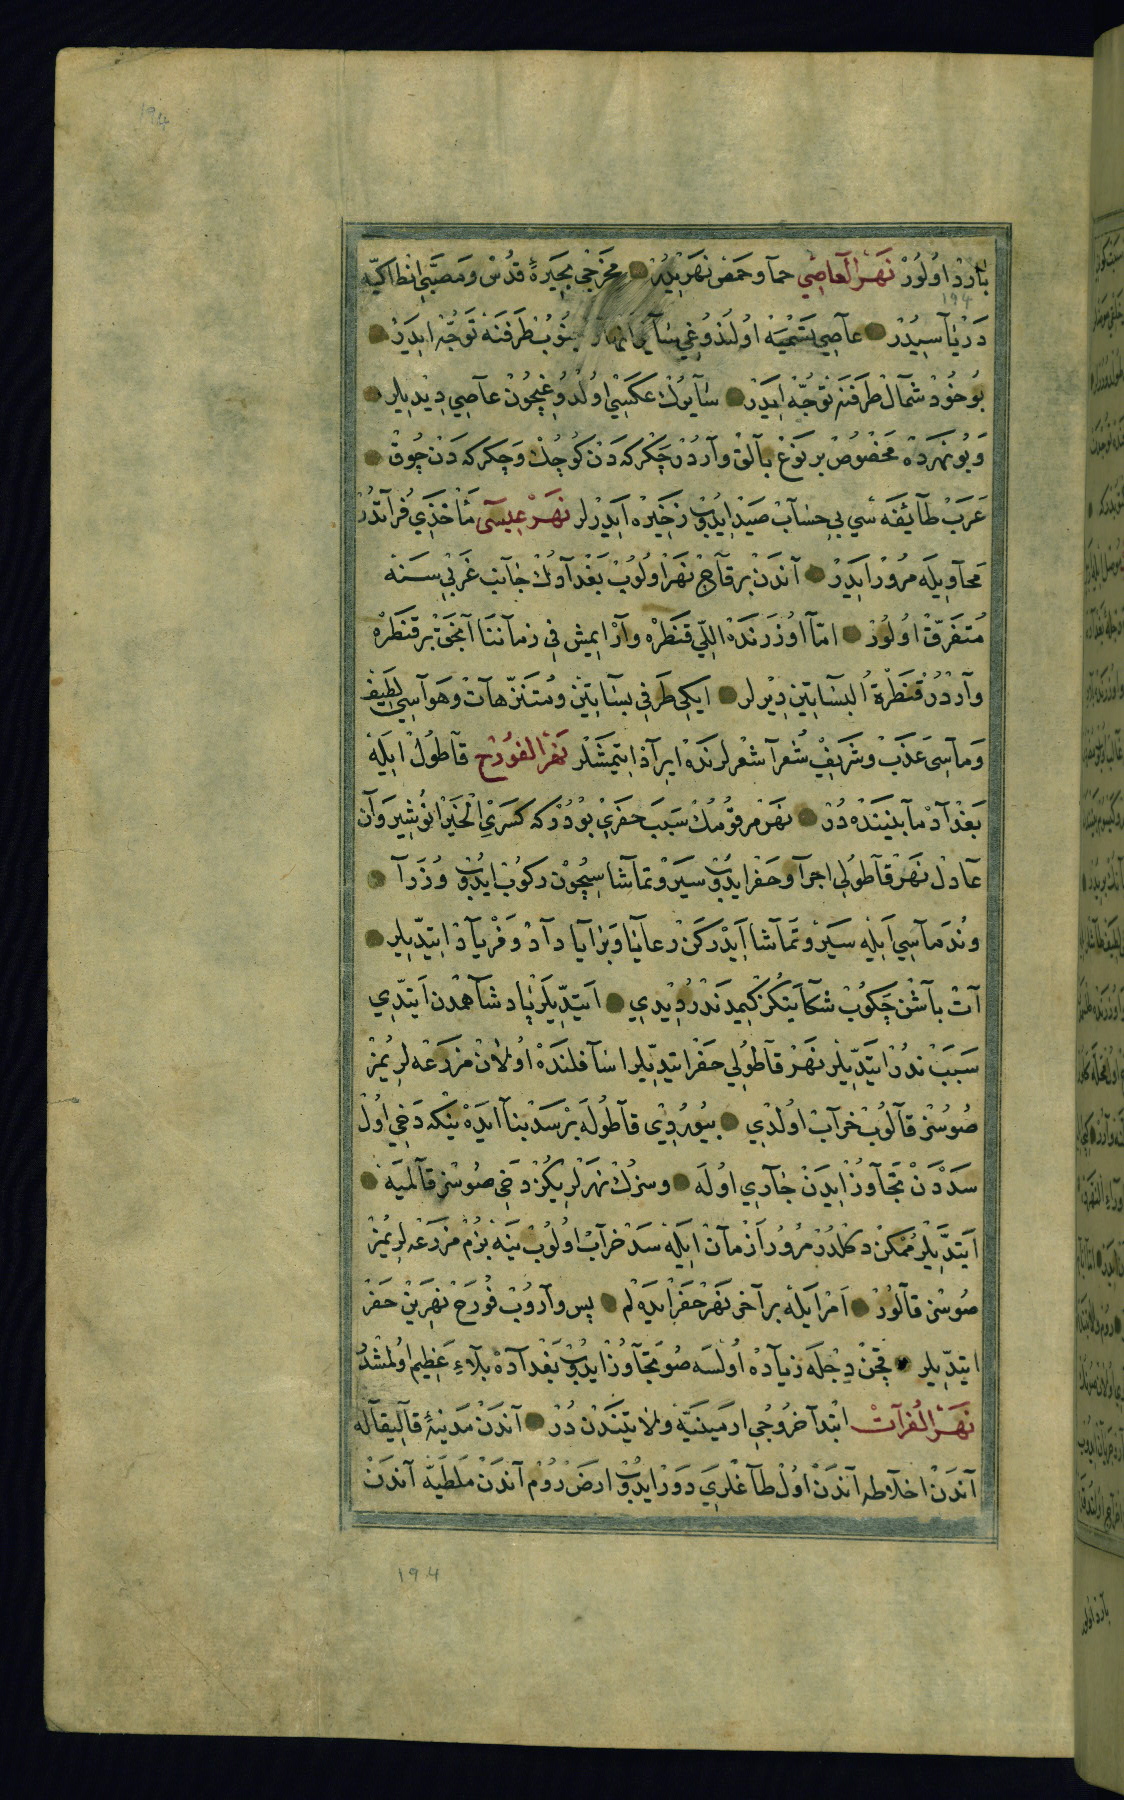 194
بارد اولور نهر العاصي حما و حمص نهريدر مخرجي بحيرۀ قدس و مصبي انطاكيه
194
درياسيدر عاصي تسميه اولندوغي ساير انهار جنوب طرفنه توجه ايدر
بو خود شمال طرفنه توجه ايدر سايرك عكسي اولدوغيچون عاصي ديديلر
و بو نهرده مخصوص بر نوع بالق واردر چكركه دن كوچك و چكركه دن چوق
عرب طائفه سي بي حساب صيد ايدوب ذخيره ايدرلر نهر عيسى مأخذي فراتدر
محاويله مرور ايدر آندن بر قاچ نهر اولوب بغدادك جانب غربيسنه
متفرق اولور اما اوزرنده اللي قنطره وار ايمش في زماننا آنجق بر قنطره
واردر قنطرة البساتين ديرلر ايكي طرفي بساتين و متنزهات و هواسي لطيف
و ماسي عذب و شريف شعرا شعرلرنده ايراد ايتمشلر نهر الفورج قاطول ايله
بغداد مابيننده در نهر مرقومك سبب حفري بودر كه كسرى الخير انوشيروان
عادل نهر قاطولي اجرا و حفر ايدوب سير و تماشا سيچون ركوب ايدوب وزرا
و ندماسي ايله سير و تماشا ايدركن رعايا و برايا داد و فرياد ايتديلر
آت باشن چكوب شكايتكز كيمدندر ديدي ايتديلر پادشاهمدن ايتدي
سبب ندر ايتديلر نهر قاطولي حفر ايتديلر اسافلنده اولان مزرعه لريمز
صوسز قالوب خراب اولدي بيوردي قاطوله بر سد بنا ايده ينكه دخي اول
سددن تجاوز ايدن جاري اوله و سزك نهرلريكز دخي صوسز قالميه
ايتديلر ممكن دكلدر مرور ازمان ايله سد خراب اولوب ينه بزم مزرعه لريمز
صوسز قالور امر ايله بر آخر نهر حفر ايده لم پس واروب فورج نهرين حفر
ايتديلر قچن دجله زياده اولسه صو تجاوز ايدوب بغداده بلاء عظيم اولمشدر
نهر الفرات ابتدا خروجي ارمينيه ولايتندن در آندن مدينۀ قاليقاله
آندن اخلاطه آندن اول طاغلري دور ايدوب ارض روم آندن ملطيه آندن
194